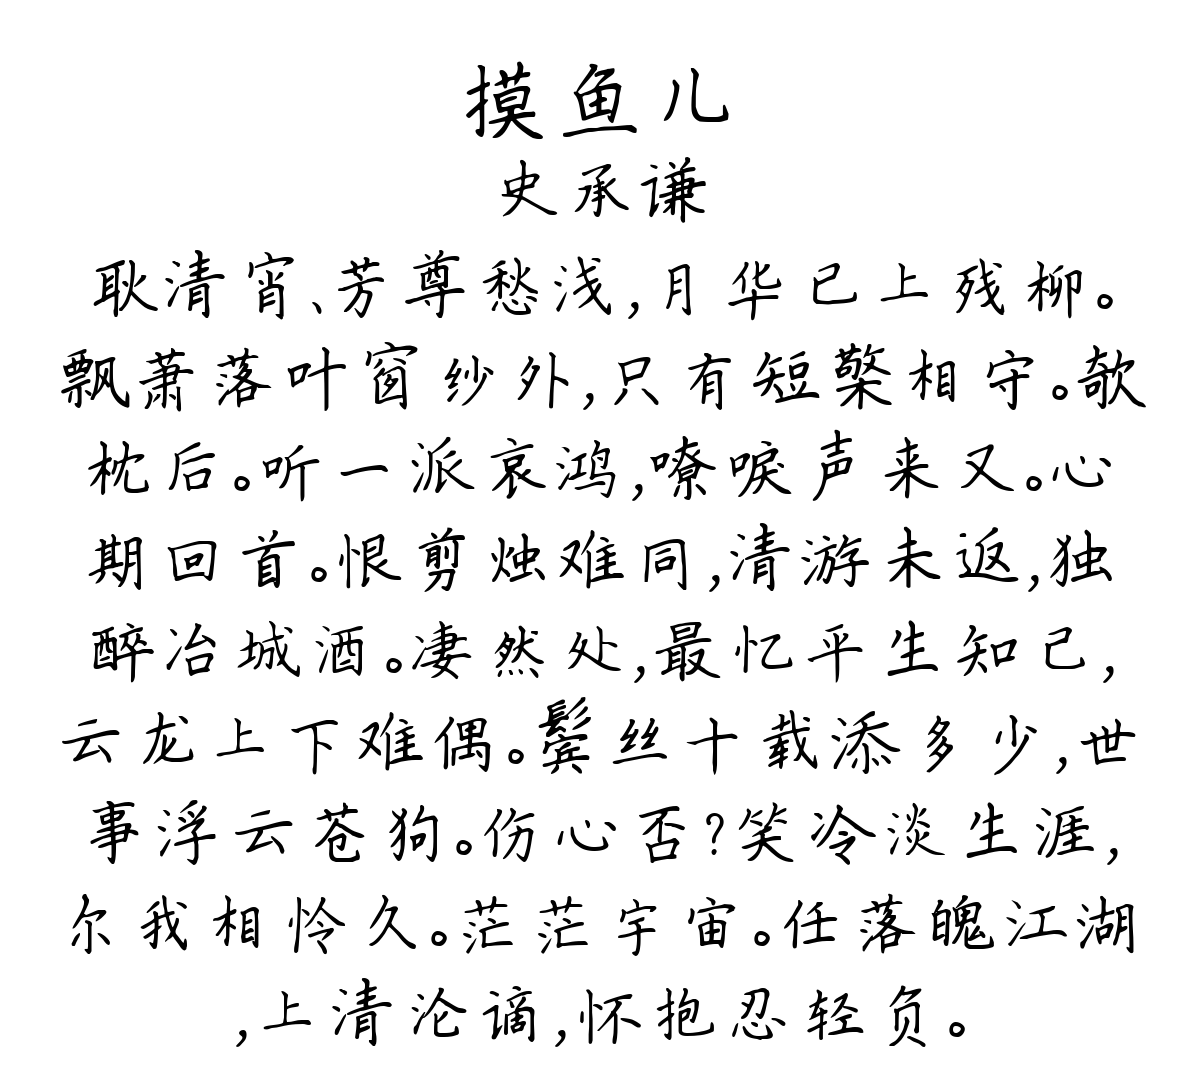 摸鱼儿
史承谦
耿清宵、芳尊愁浅,月华已上残柳。
飘萧落叶窗纱外,只有短檠相守。欹
枕后。听一派哀鸿,嘹唳声来又。心
期回首。恨剪烛难同,清游未返,独
醉冶城酒。凄然处,最忆平生知己,
云龙上下难偶。鬓丝十载添多少,世
事浮云苍狗。伤心否?笑冷淡生涯,
尔我相怜久。茫茫宇宙。任落魄江湖
,上清沦谪,怀抱忍轻负。